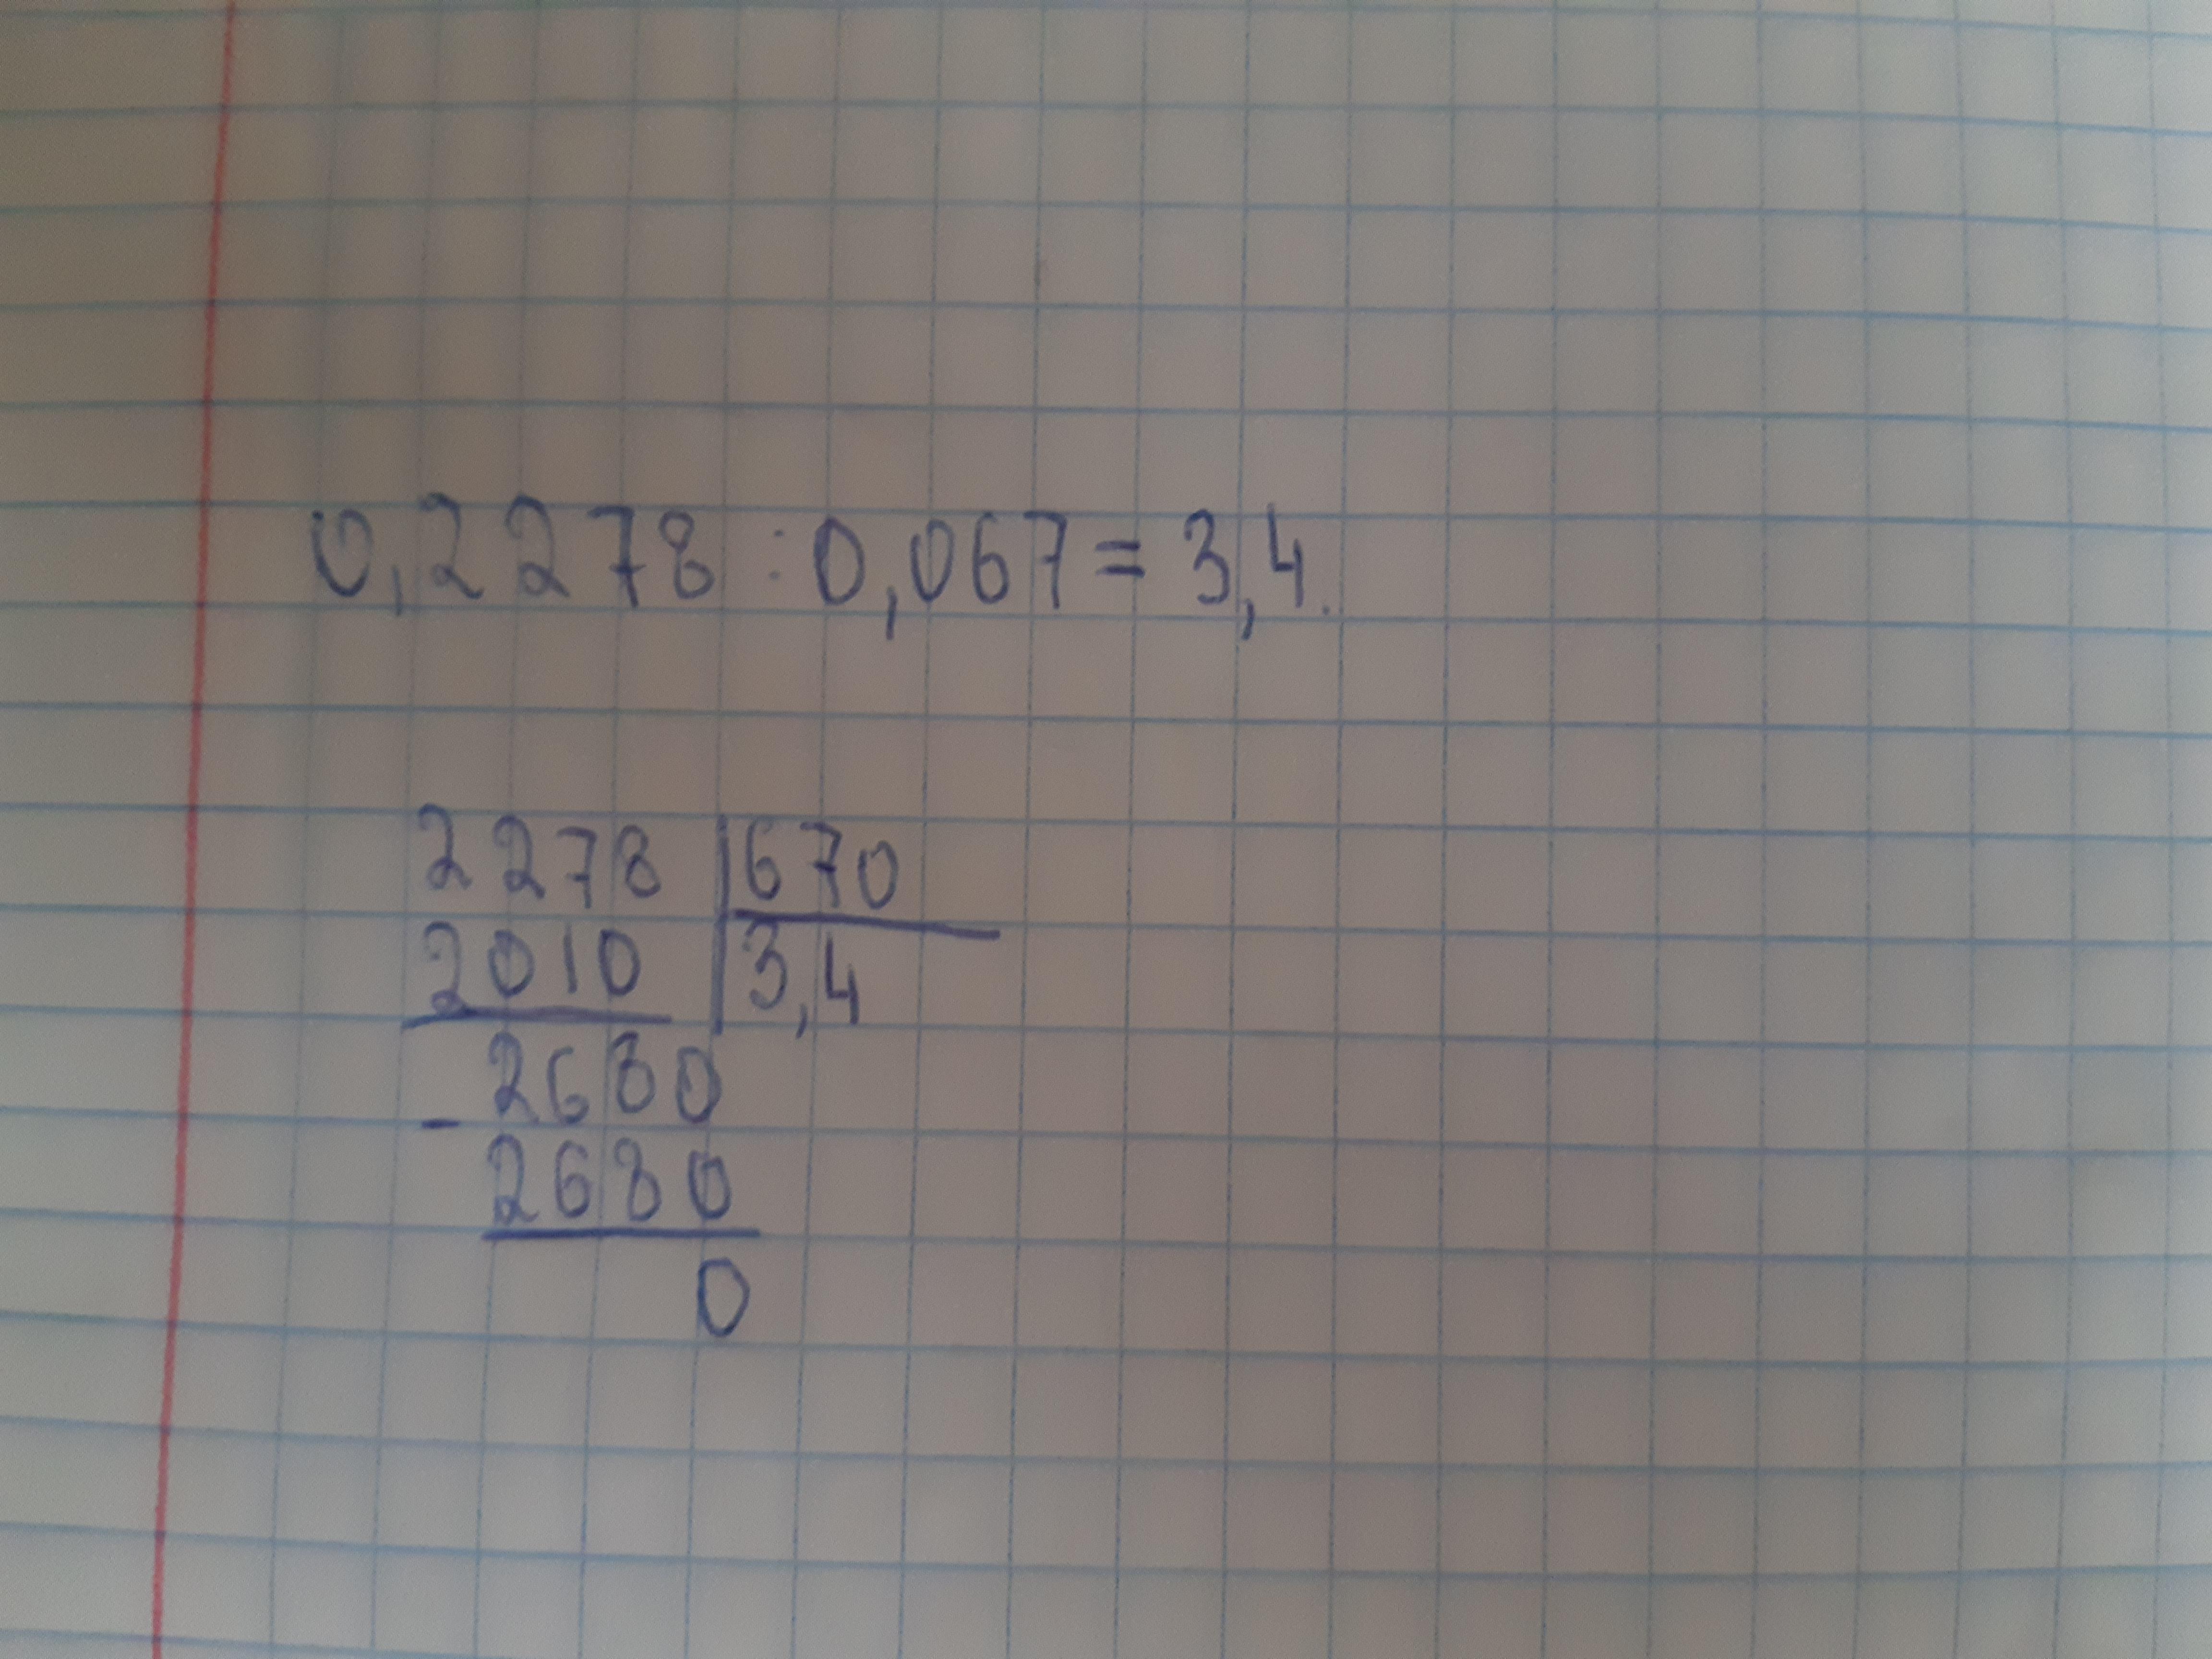 0,2278 : 0,067 = 3,4.
2278 | 670
2010 | 3,4
2680
-
2680
0